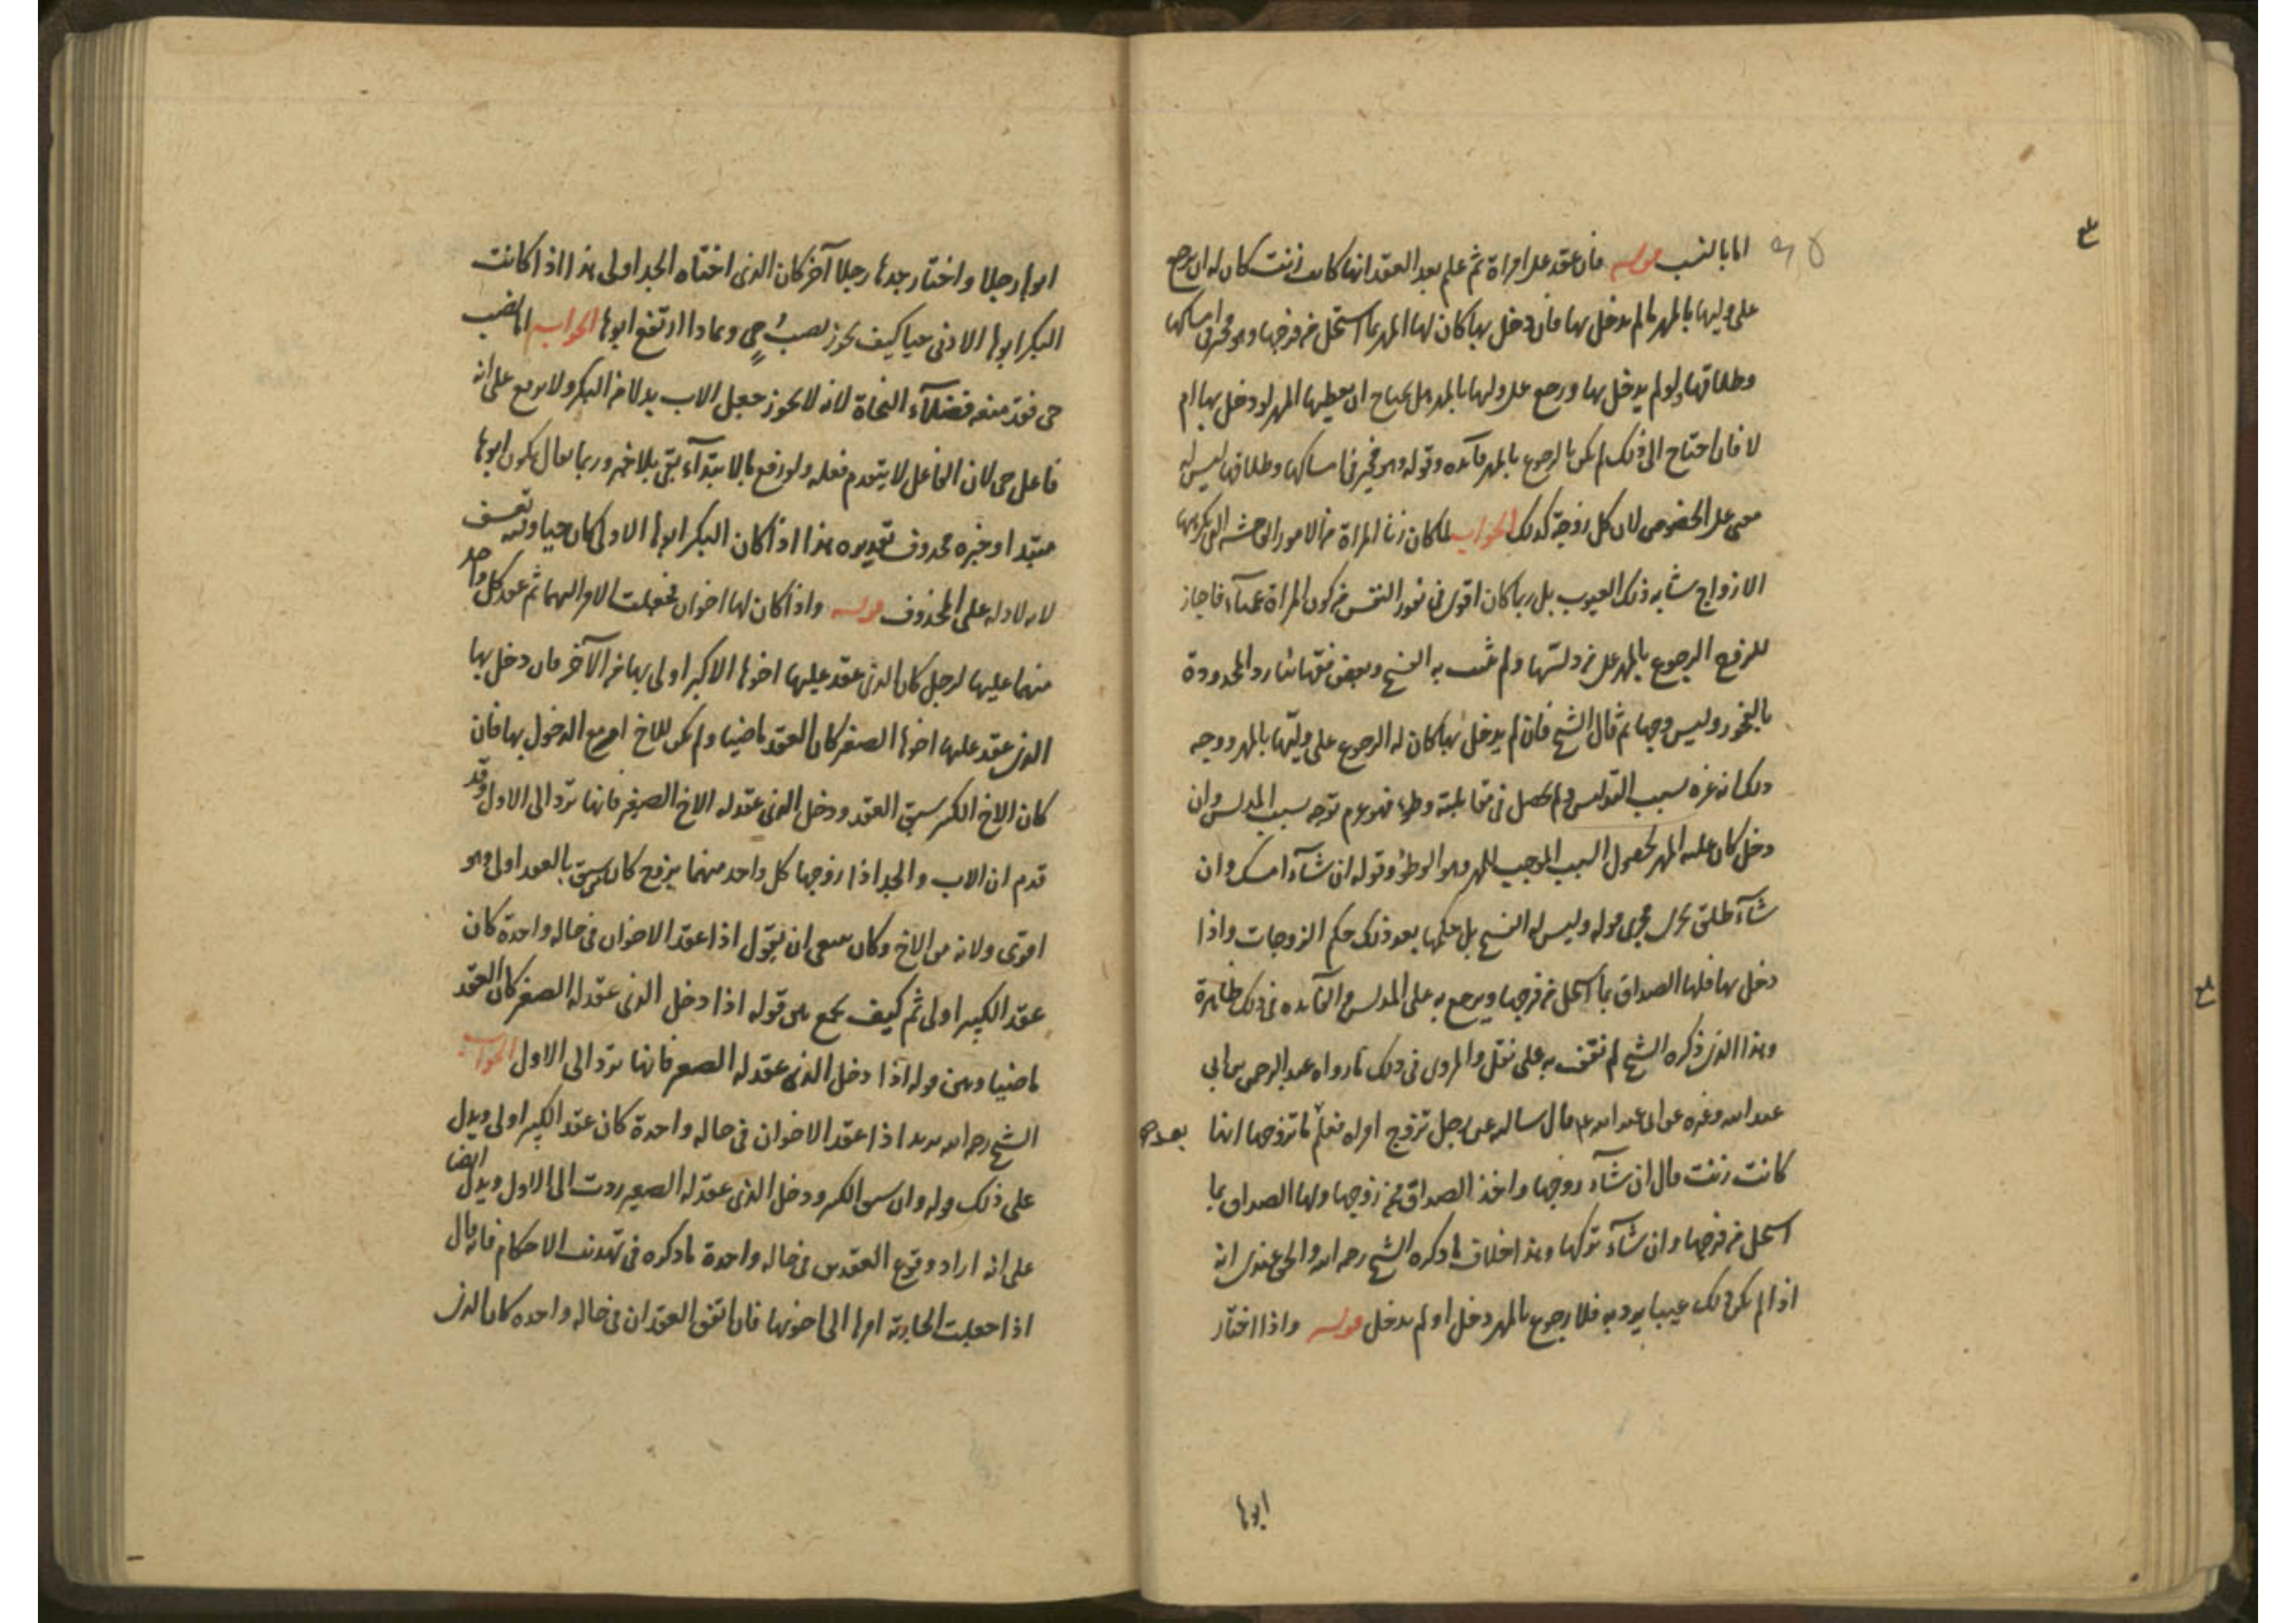 اما بالنسب قوله فان عقد على امراة ثم علم بعد العقد انها كانت زنت كان له ان يرجع
على وليها بالمهر ما لم يدخل بها فان دخل بها كان لها المهر بما استحل من فرجها وهو مخير في امساكها
وطلاقها ولو لم يدخل بها ورجع على وليها بالمهر هل يحتاج ان يعطيها المهر لو دخل بها ام
لا فان احتاج الى ذلك لم يكن بالرجوع بالمهر فآئده وقوله وهو مخير في امساكها وطلاقها ليس له
معنى على الخصوص لان كل زوجة كذلك الجواب لما كان زنا المراة من الامور الفاحشه التي يكرهها
الازواج شابه ذلك العيوب بل ربما كان اقوى في نفور النفس من كون المراة عميآء فاجاز
للزوج الرجوع بالمهر على من دلسها ولم يثبت به الفسخ وبعض فقهائنا رد المحدودة
بالفجور وليس وجها ثم قال الشيخ فان لم يدخل بها كان له الرجوع على وليها بالمهر ووجه
ذلك انه غره بسبب التدليس ولم يحصل في مقابلته وطىء فهو غرم توجه بسبب المدلس وان
دخل كان عليه المهر لحصول السبب الموجب للمهر وهو الوطؤ وقوله ان شآء امسك وان
شآء طلق يجرى مجرى قوله وليس له الفسخ بل حكمها بعد ذلك حكم الزوجات واذا
دخل بها فلها الصداق بما استحل من فرجها ويرجع به على المدلس والفآئده في ذلك ظاهرة
وهذا الذى ذكره الشيخ لم نقف به على نقل والمروى في ذلك ما رواه عبد الرحمن بن ابي
عبد الله وغيره عن ابى عبد الله ع قال سالته عن رجل تزوج امراه فعلم بعد ما تزوجها انها
كانت زنت قال ان شآء زوجها واخذ الصداق ممن زوجها ولها الصداق بما
استحل من فرجها وان شآء تركها وهذا خلاف ما ذكره الشيخ رحمه الله والحق عندى انه
اذا لم يكن ذلك عيبا يرد به فلا رجوع بالمهر دخل او لم يدخل قوله واذا اختار
ابوها
ابوها رجلا واختار جدها رجلا آخر كان الذى اختاه الجد اولى هذا اذا كانت
البكر ابوها الادنى حيا كيف يجوز نصب حي وبماذا ارتفع ابوها الجواب اما نصب
حى فقد منعه فضلآء النحاة لانه لا يجوز جعل الاب بدلا من البكر ولا يرفع على انه
فاعل حى لان الفاعل لا يتقدم فعله ولو رفع بالابتدآء بقى بلا خبر وربما يقال يكون ابوها
مبتدا وخبره محذوف تقديره هذا اذا كان البكر ابوها الاولى كان حيا وفيه تعسف
لانه لا دلاله على المحذوف قوله واذا كان لها اخوان فجعلت الامر اليهما ثم عقد كل واحد
منهما عليها لرجل كان الذى عقد عليها اخوها الاكبر اولى بها من الآخر فان دخل بها
الذى عقد عليها اخوها الصغير كان العقد ماضيا ولم يكن للاخ امر مع الدخول بها فان
كان الاخ الكبير سبق العقد ودخل الذى عقد له الاخ الصغير فانها ترد الى الاول وقد
قدم ان الاب والجد اذا زوجها كل واحد منهما بزوج كان من سبق بالعقد اولى وهو
اقوى ولاية من الاخ وكان ينبغى ان يقول اذا عقد الاخوان في حاله واحدة كان
عقد الكبير اولى ثم كيف يجمع بين قوله اذا دخل الذى عقد له الصغير كان العقد
ماضيا وبين قوله اذا دخل الذى عقد له الصغير فانها ترد الى الاول الجواب
الشيخ رحمه الله يريد اذا عقد الاخوان في حاله واحدة كان عقد الكبير اولى ويدل
على ذلك قوله وان سبق الكبير ودخل الذى عقد له الصغير ردت الى الاول ويدل ايضا
على انه اراد وقوع العقدين في حاله واحدة ما ذكره في تهذيب الاحكام فانه قال
اذا جعلت الجارية امرها الى اخويها فان اتفق العقدان في حاله واحده كان الذى